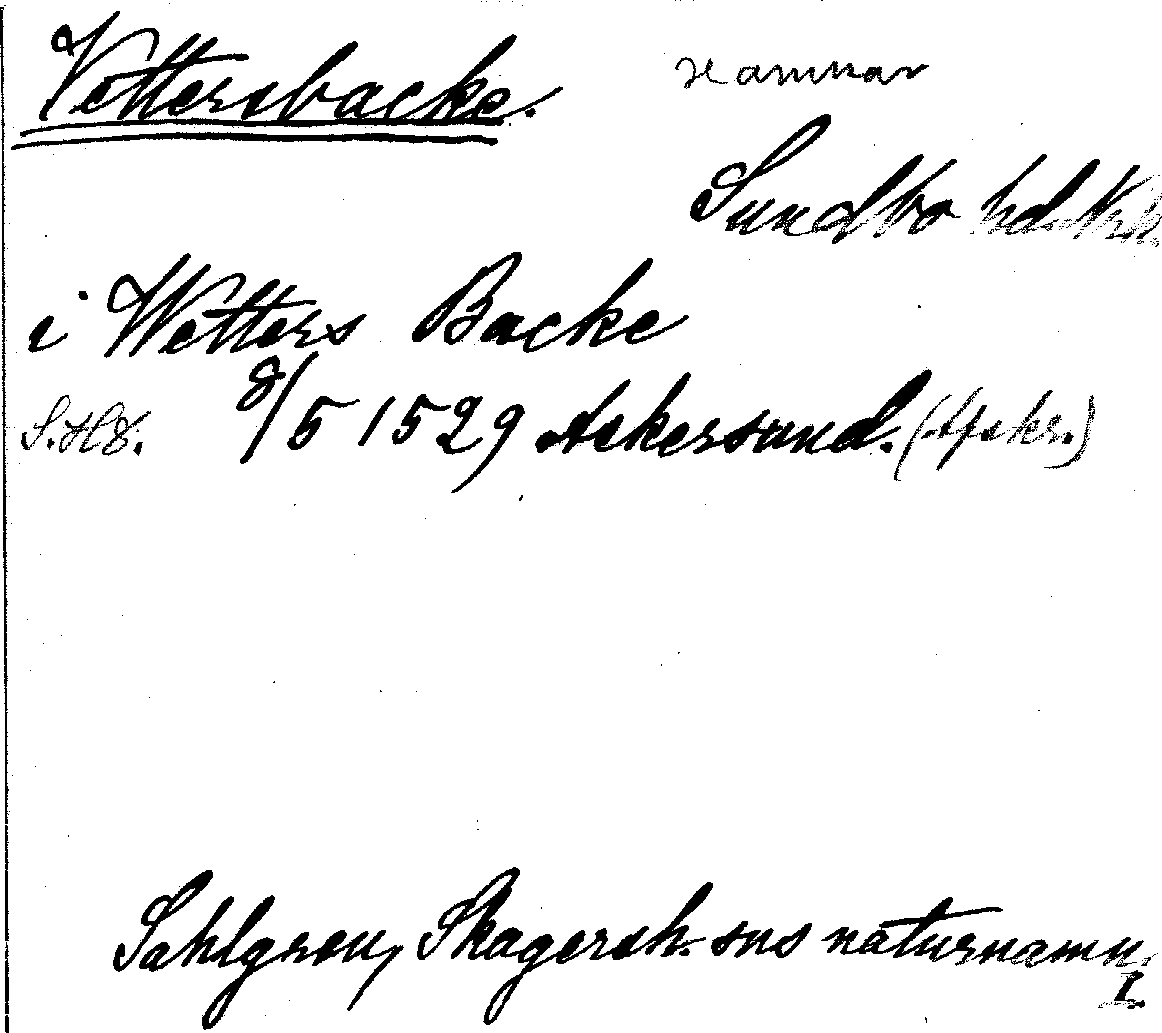 Vettersbacke.
Hammar
Sundbo hd. Nrk.
i Wetters Backe
S.H.H. 8/5 1529 Askersund. (Afskr.)
Sahlgren, Skagersh. sns naturnamn.
I.